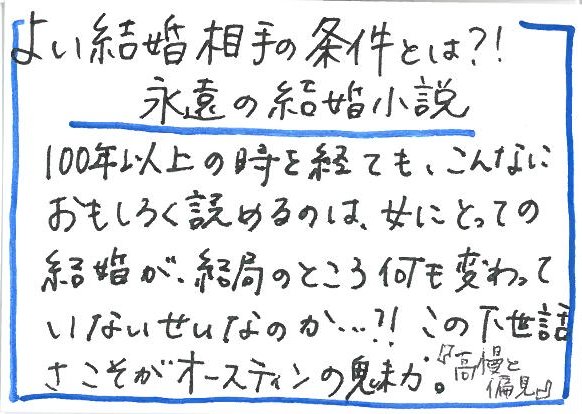 よい結婚相手の条件とは?!
永遠の結婚小説
100年以上の時を経ても、こんなに
おもしろく読めるのは、女にとっての
結婚が、結局のところ何も変わって
いないせいなのか…?! この下世話
さこそがオースティンの魅力。『高慢と
偏見』